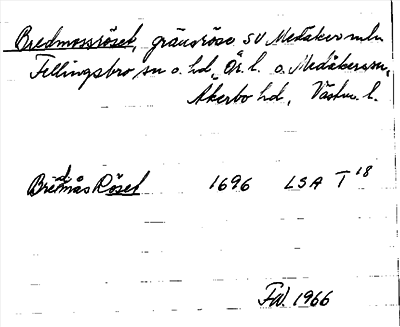 Bredmossröset, gränsröse SV Medåkers meln
Fellingsbro sn o. hd, Ör. l. o. Medåkers sn,
Åkerbo hd, Västm. l.
Bredmås Röset 1696 LSA T 18
FW. 1966